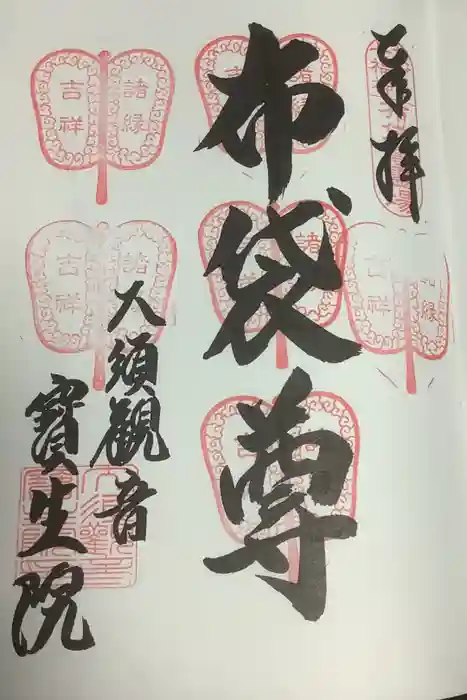 奉拝
布袋尊
大須観音
寶生院
諸縁
吉祥
諸縁
吉祥
諸縁
吉祥
諸